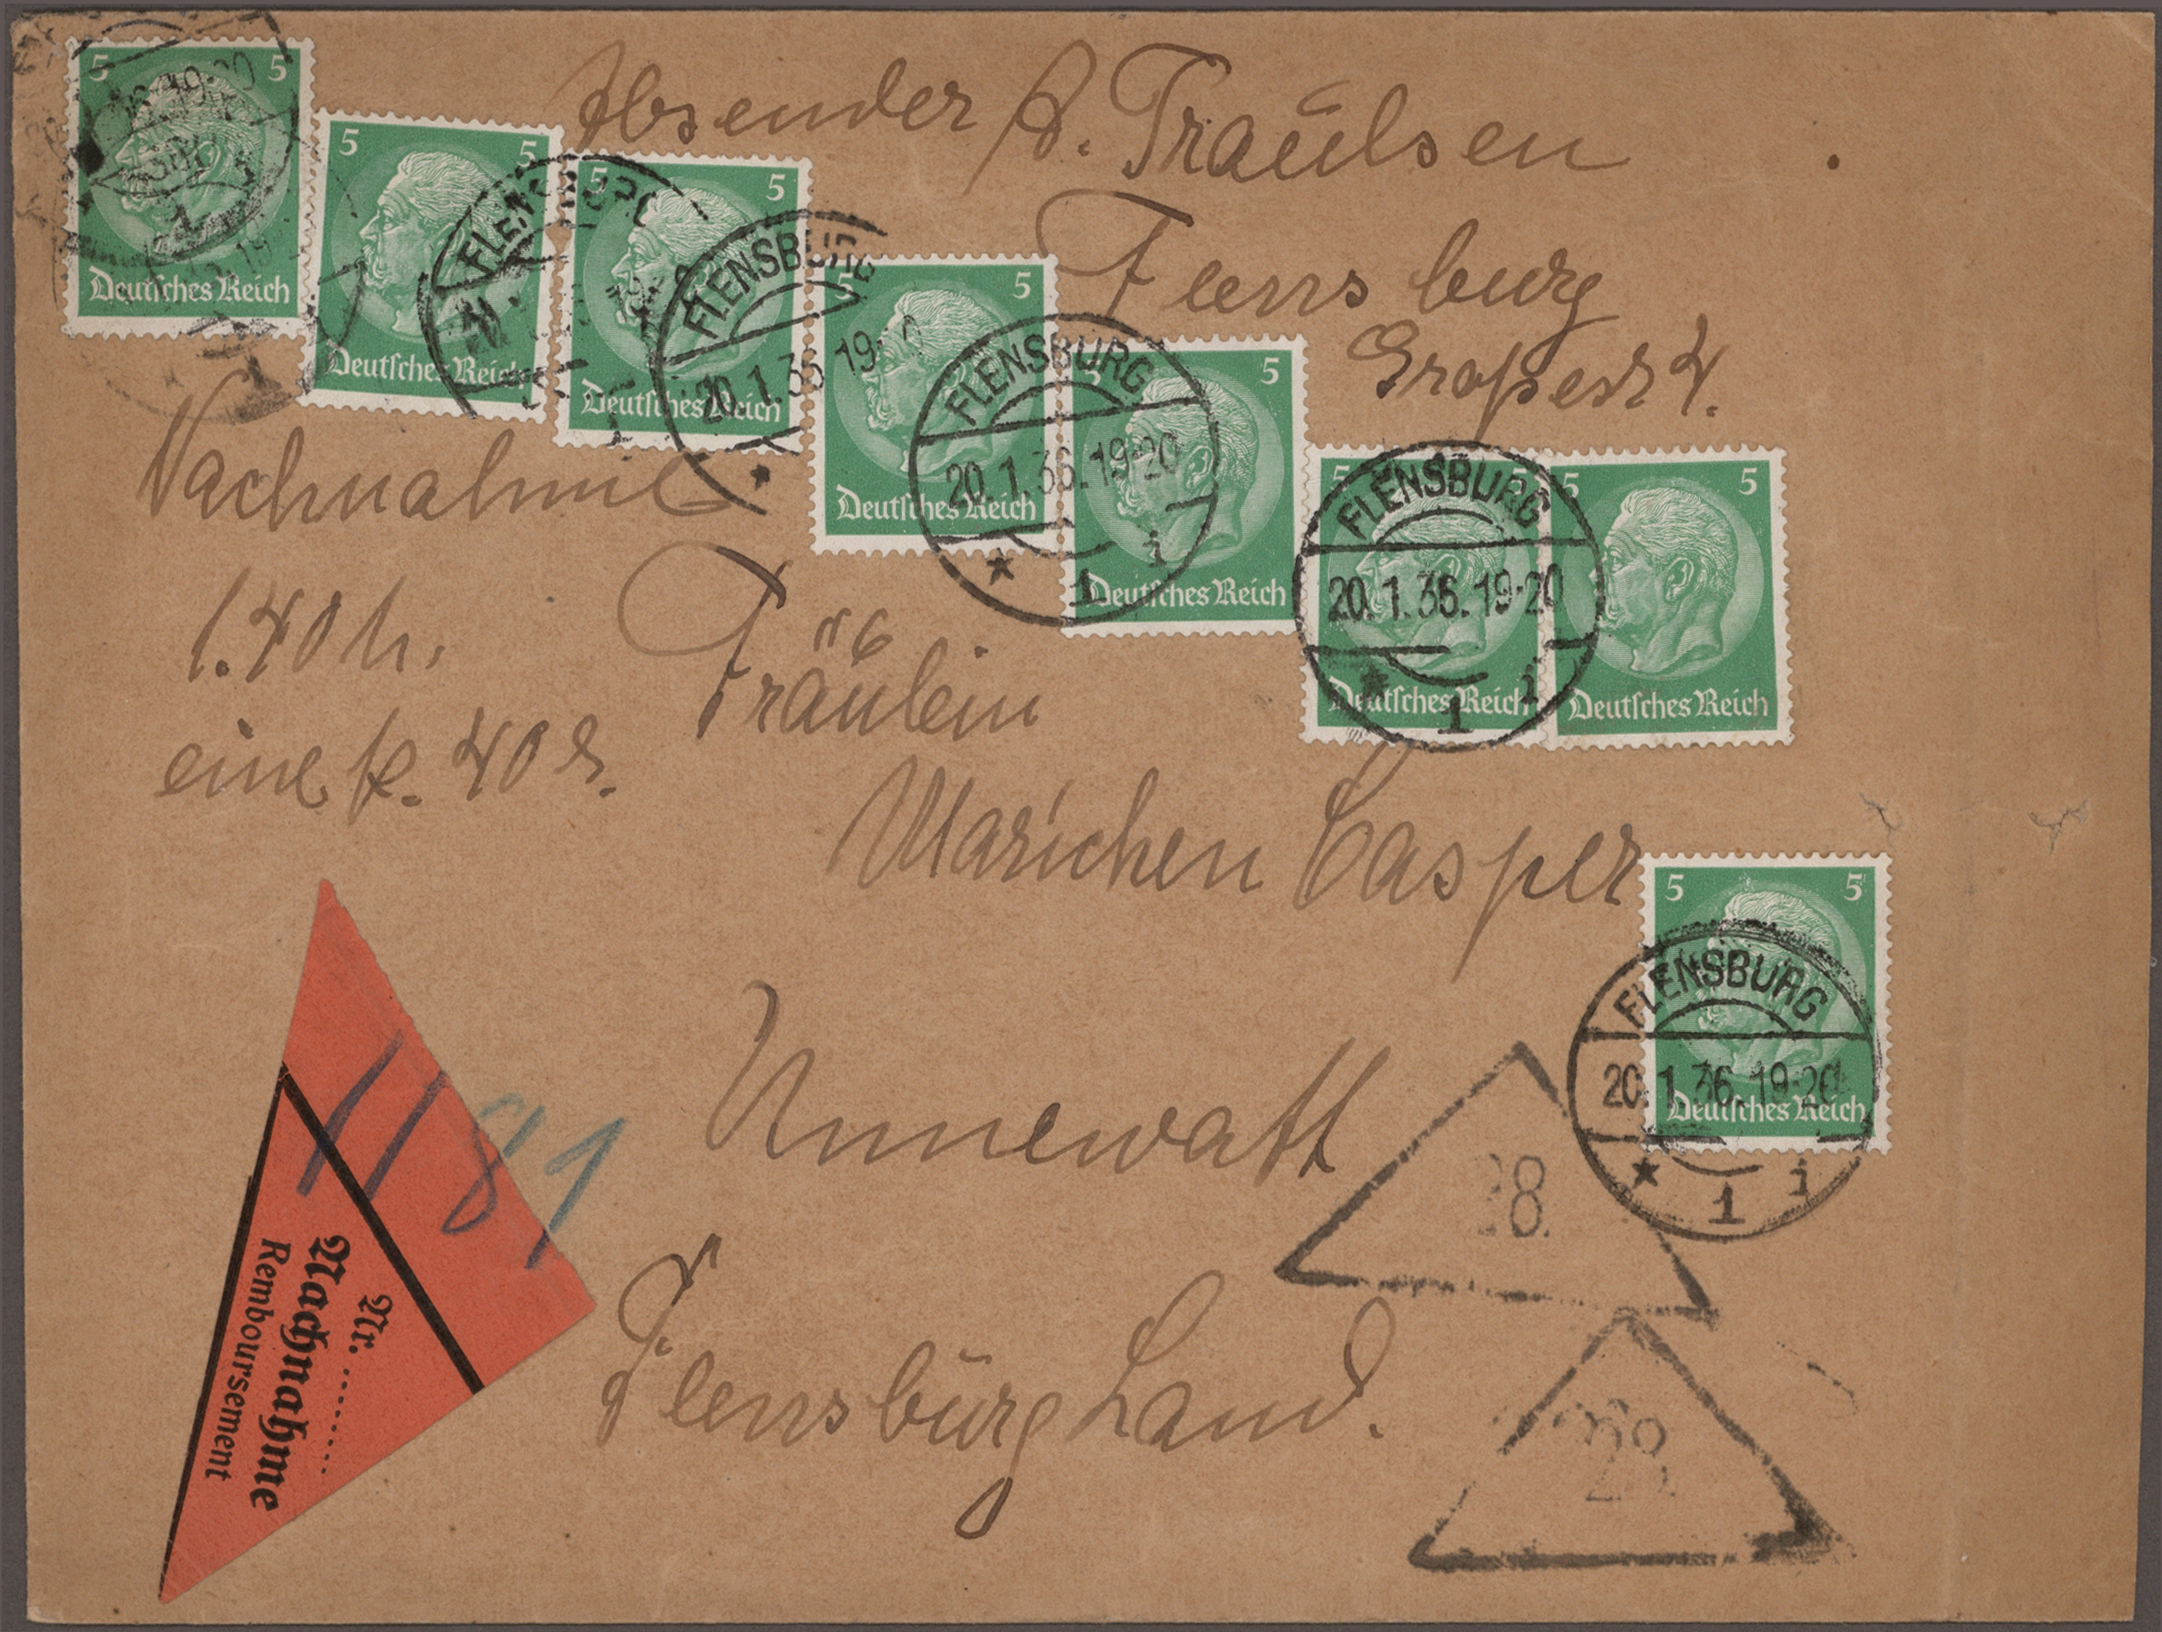 Absender A. Traulsen
Flensburg
Nachnahme
1.40
eine 40
Fräulein
Mariechen Casper
Unewatt
Flensburg Land.
5 5
Deutsches Reich
5 5
Deutsches Reich
5 5
Deutsches Reich
5 5
Deutsches Reich
5 5
Deutsches Reich
5 5
Deutsches Reich
5 5
Deutsches Reich
5 5
Deutsches Reich
FLENSBURG
FLENSBURG
20.1.36.19
FLENSBURG
20.1.36.19-20
1 i
FLENSBURG
20.1.36.19-20
1 i
FLENSBURG
20.1.36.19-20
1 i
28.
1189
Nr. ........
Nachnahme
Remboursement